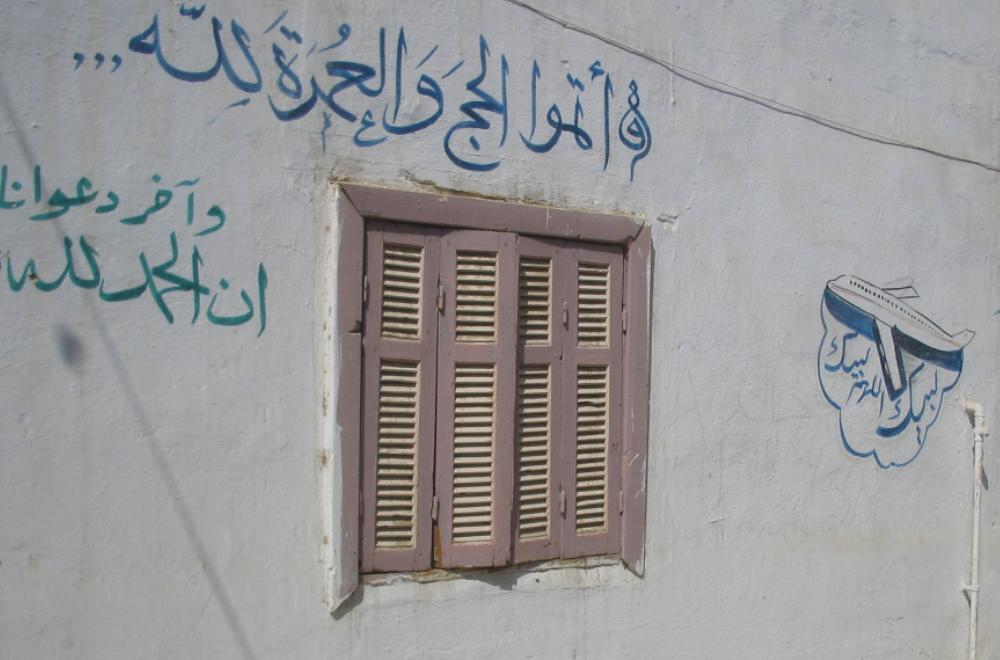 وأتموا الحج وَالعُمرَةَ لِلّه...
وآخر دعوانا
ان الحمد لله
لبيك اللهم لبيك